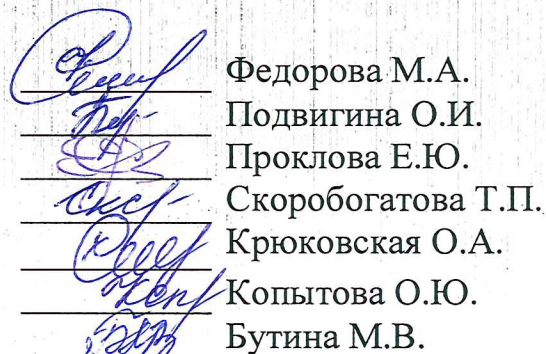 Федорова М.А.
Подвигина О.И.
Проклова Е.Ю.
Скоробогатова Т.П.
Крюковская О.А.
Копытова О.Ю.
Бутина М.В.